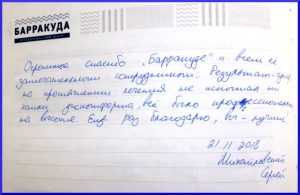 БАРРАКУДА
Огромное спасибо „Барракуде" и всем её
замечательным сотрудникам. Результат
на протяжении лечения не испытал ни
капли дискомфорта, всё было профессионально
на высоте. Ещё раз благодарю, вы - лучшие!
21.11.2018
Михайловский
Сергей